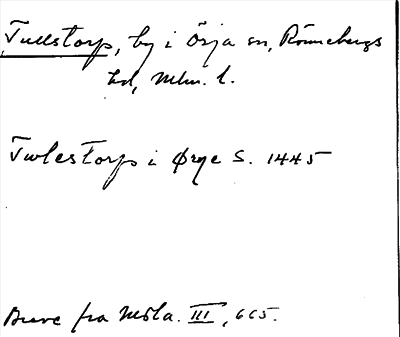 Tullstorp, by i Örja sn, Rönnebergs
hd, Mlm. l.
Twlestorp i Ørye S. 1445
Breve fra Msta. III, 665.